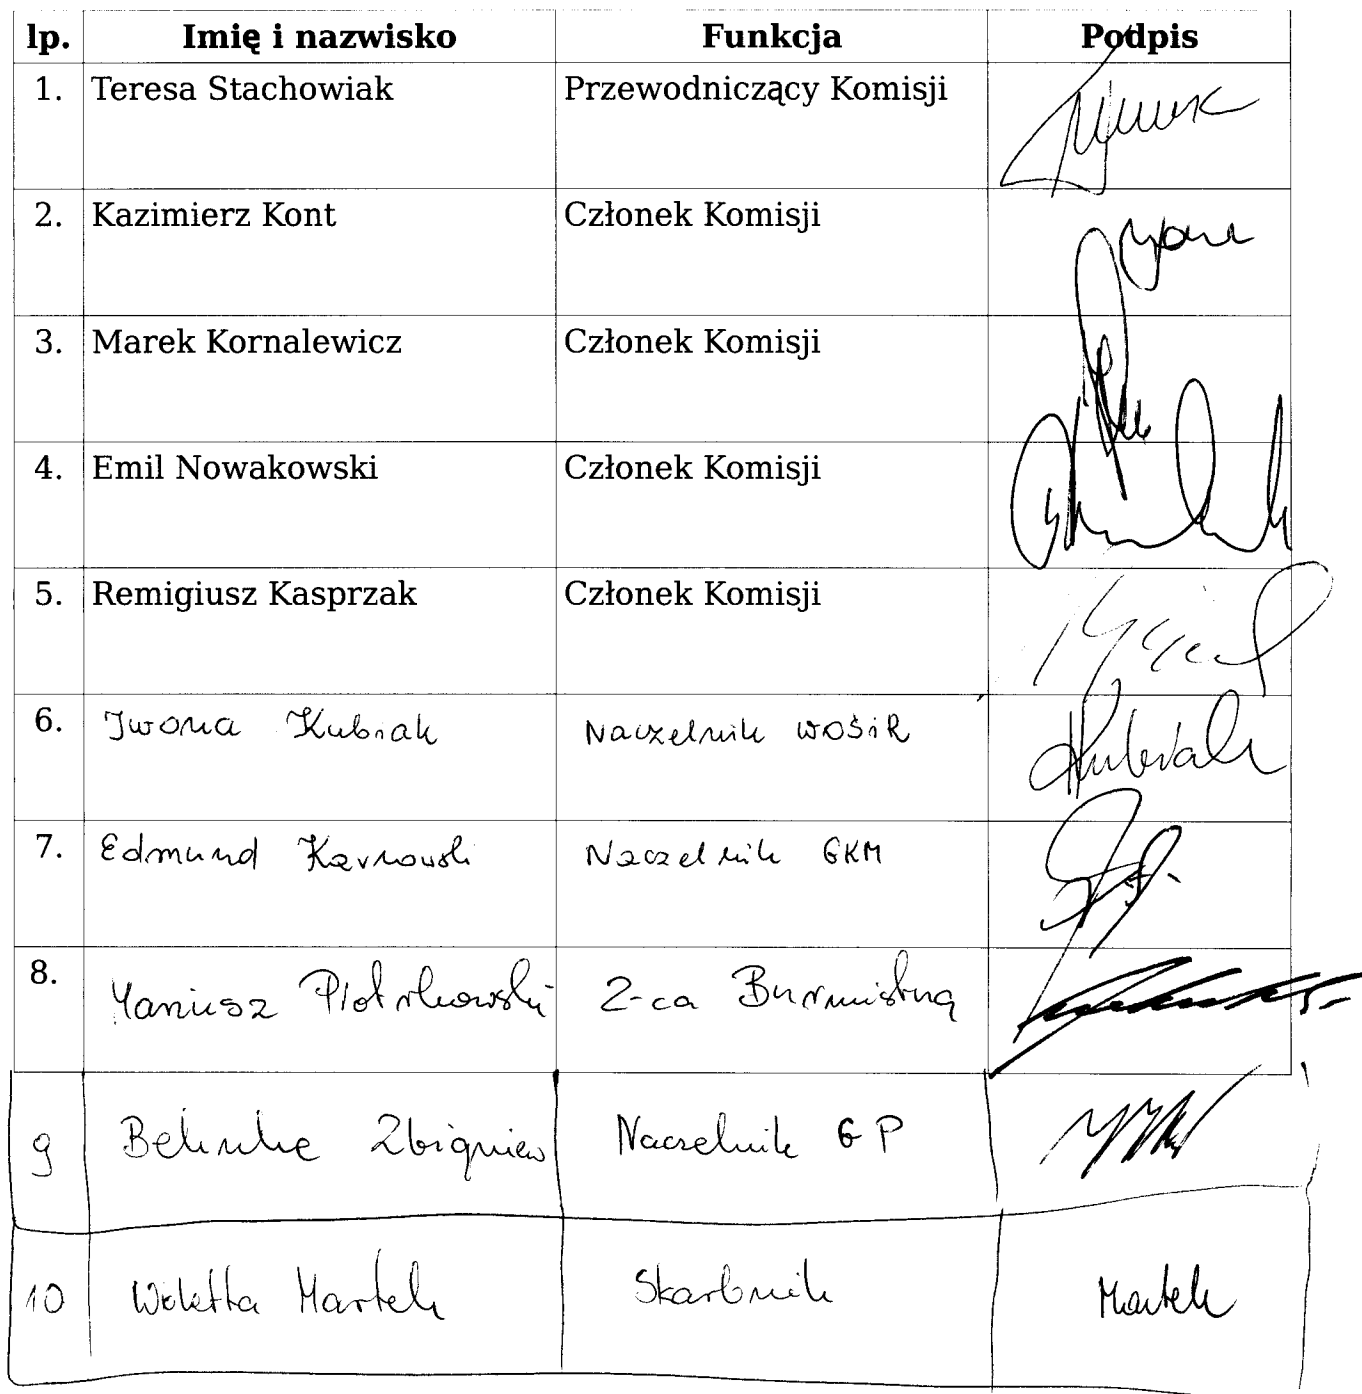 lp. Imię i nazwisko Funkcja Podpis
1. Teresa Stachowiak Przewodniczący Komisji
2. Kazimierz Kont Członek Komisji
3. Marek Kornalewicz Członek Komisji
4. Emil Nowakowski Członek Komisji
5. Remigiusz Kasprzak Członek Komisji
6. Iwona Kubiak Naczelnik WOŚiR Kubiak
7. Edmund Karnowski Naczelnik GKM
8. Janusz Piotrkowski Z-ca Burmistrza
9 Behnke Zbigniew Naczelnik GP
10 Wioletta Martek Skarbnik Martek